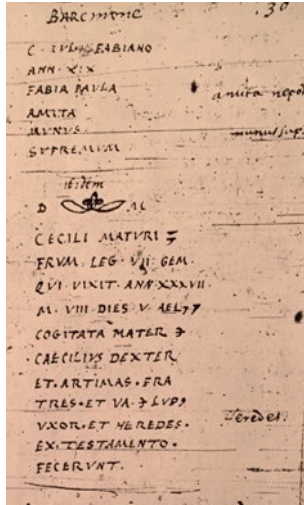 BARCINONE 30
C · IVL · FABIANO
ANN · XIX
FABIA PAVLA
AMITA amita nepo
MVNVS
SVPREMVM munus sup.
ibidem
D M
CECILI MATVRI
FRVM LEG · VII GEM ·
QVI VIXIT ANN XXXVII
M · VIII DIES V AEL
COGITATA MATER
CAECILIVS DEXTER
ET · ARTIMAS · FRA
TRES · ET VA LVP
VXOR · ET HEREDES · heredes.
EX · TESTAMENTO ·
FECERVNT ·